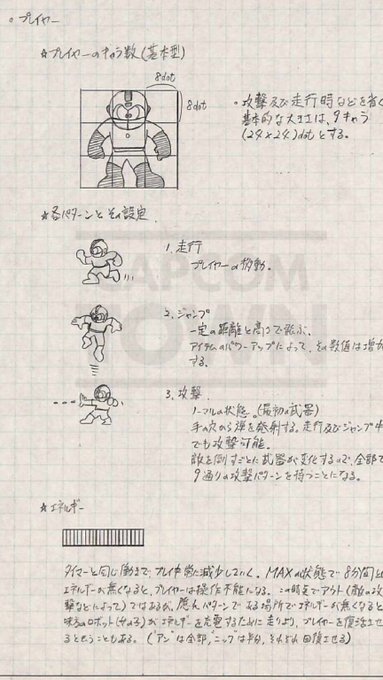 。プレイヤー
☆プレイヤーのキャラ数(基本型)
8dot
8dot
・攻撃及び走行時などを省く
基本的な大きさは、9キャラ
(24×24)dotとする。
☆各パターンとその設定.
1. 走行
プレイヤーの移動。
2. ジャンプ
一定の距離と高さで飛ぶ.
アイテムのパワーアップによって、その数値は増加
する.
3. 攻撃
ノーマルの状態.(最初の武器)
手の穴から弾を発射する。走行及びジャンプ中
でも攻撃可能.
敵を倒すごとに武器が変化するので、全部で
9通りの攻撃パターンを持つことになる。
☆エネルギー
タイマーと同じ働きで、プレイ中常に減少していく. MAXの状態で8分間
エネルギーが無くなると、プレイヤーは操作不能になる. この時点でアウト(敵の攻
撃などによって)ではあるが、パターンである場所でエネルギーが無くなると
味方のロボットがエネルギーを充電するために走りより、プレイヤーを復活させ
るということもある.(は全部、は半分、それぞれ回復させる)
CAPCOM
TOWN